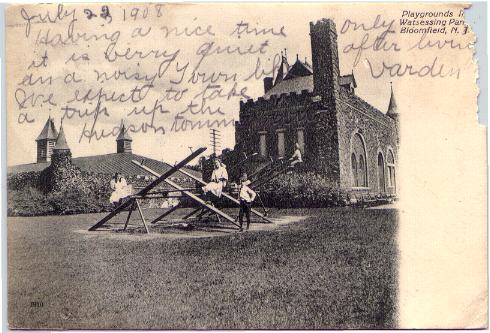 July 22 1908
Having a nice time only
it is very quiet after living
in a noisy Town like Varden
We expect to take
a trip up the
Hudson tomm
Playgrounds I
Watsessing Par
Bloomfield, N. J